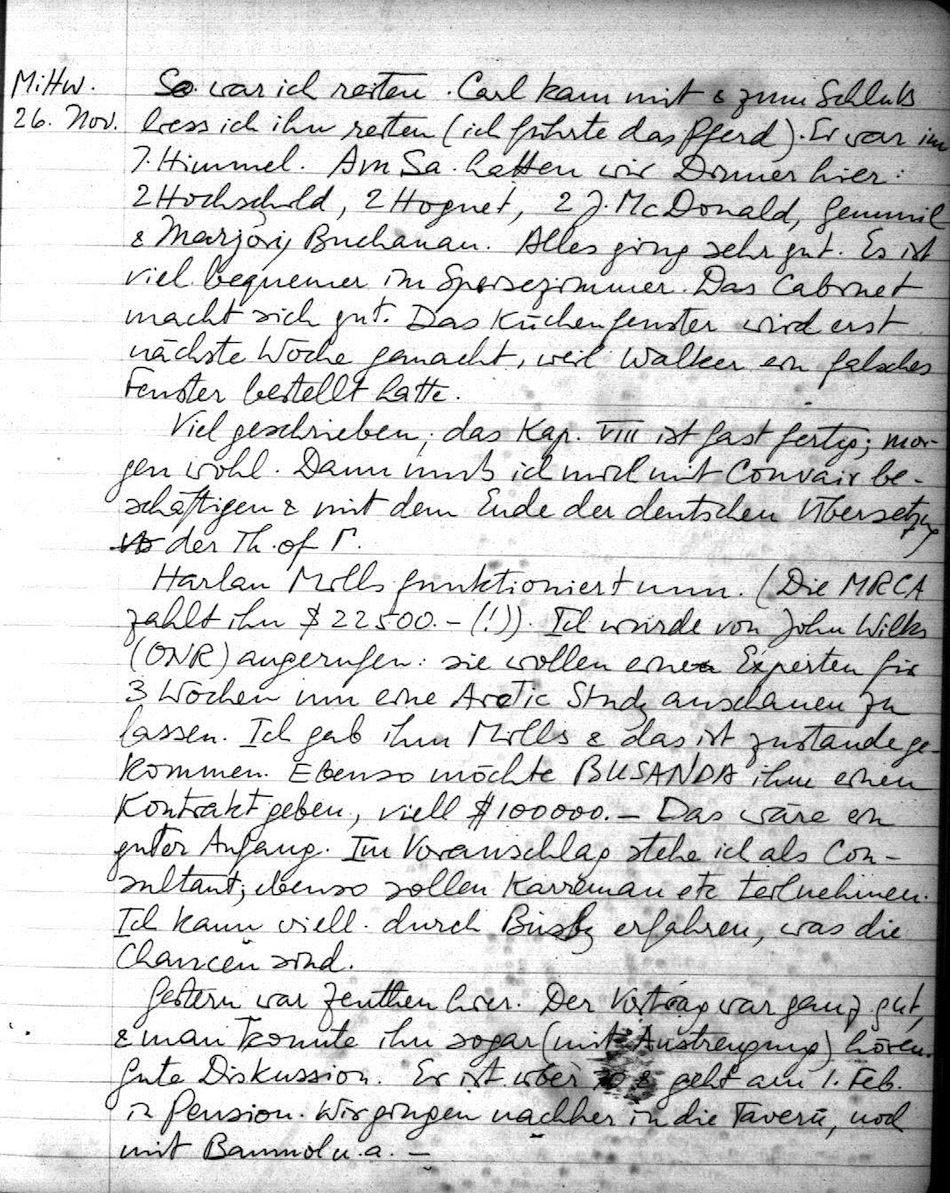 Mittw. So. war ich reiten. Carl kam mit & zum Schluß
26. Nov. liess ich ihn reiten (ich führte das Pferd). Er war im
7. Himmel. Am Sa. hatten wir Dinner hier:
2 Hochschild, 2 Hoguet, 2 J. McDonald, Gemmil
& Marjory Buchanan. Alles ging sehr gut. Es ist
viel bequemer im Speisezimmer. Das Cabinet
macht sich gut. Das Küchenfenster wird erst
nächste Woche gemacht, weil Walker ein falsches
Fenster bestellt hatte.
Viel geschrieben; das Kap. VIII ist fast fertig; mor-
gen wohl. Dann muß ich mich mit Convair be-
schäftigen & mit dem Ende der deutschen Übersetzg
der Th. of Γ.
Harlan Mills funktioniert nun. (Die MRCA
zahlt ihn $ 22500.- (!)). Ich wurde von John Wilks
(ONR) angerufen: sie wollen einen Experten für
3 Wochen um eine Arctic Study anschauen zu
lassen. Ich gab ihm Mills & das ist zustande ge-
kommen. Ebenso möchte BUSANDA ihm einen
Kontrakt geben, viell $100000.- Das wäre ein
guter Anfang. Im Voranschlag stehe ich als Con-
sultant; ebenso sollen Karreman etc teilnehmen.
Ich kann viell. durch Busby erfahren, was die
Chancen sind.
Gestern war Zeuthen hier. Der Vortrag war ganz gut,
& man konnte ihn sogar (mit Anstrengung) hören.
Gute Diskussion. Er ist über 70 & geht am 1. Feb.
in Pension. Wir gingen nachher in die Tavern, noch
mit Baumol u. a. –